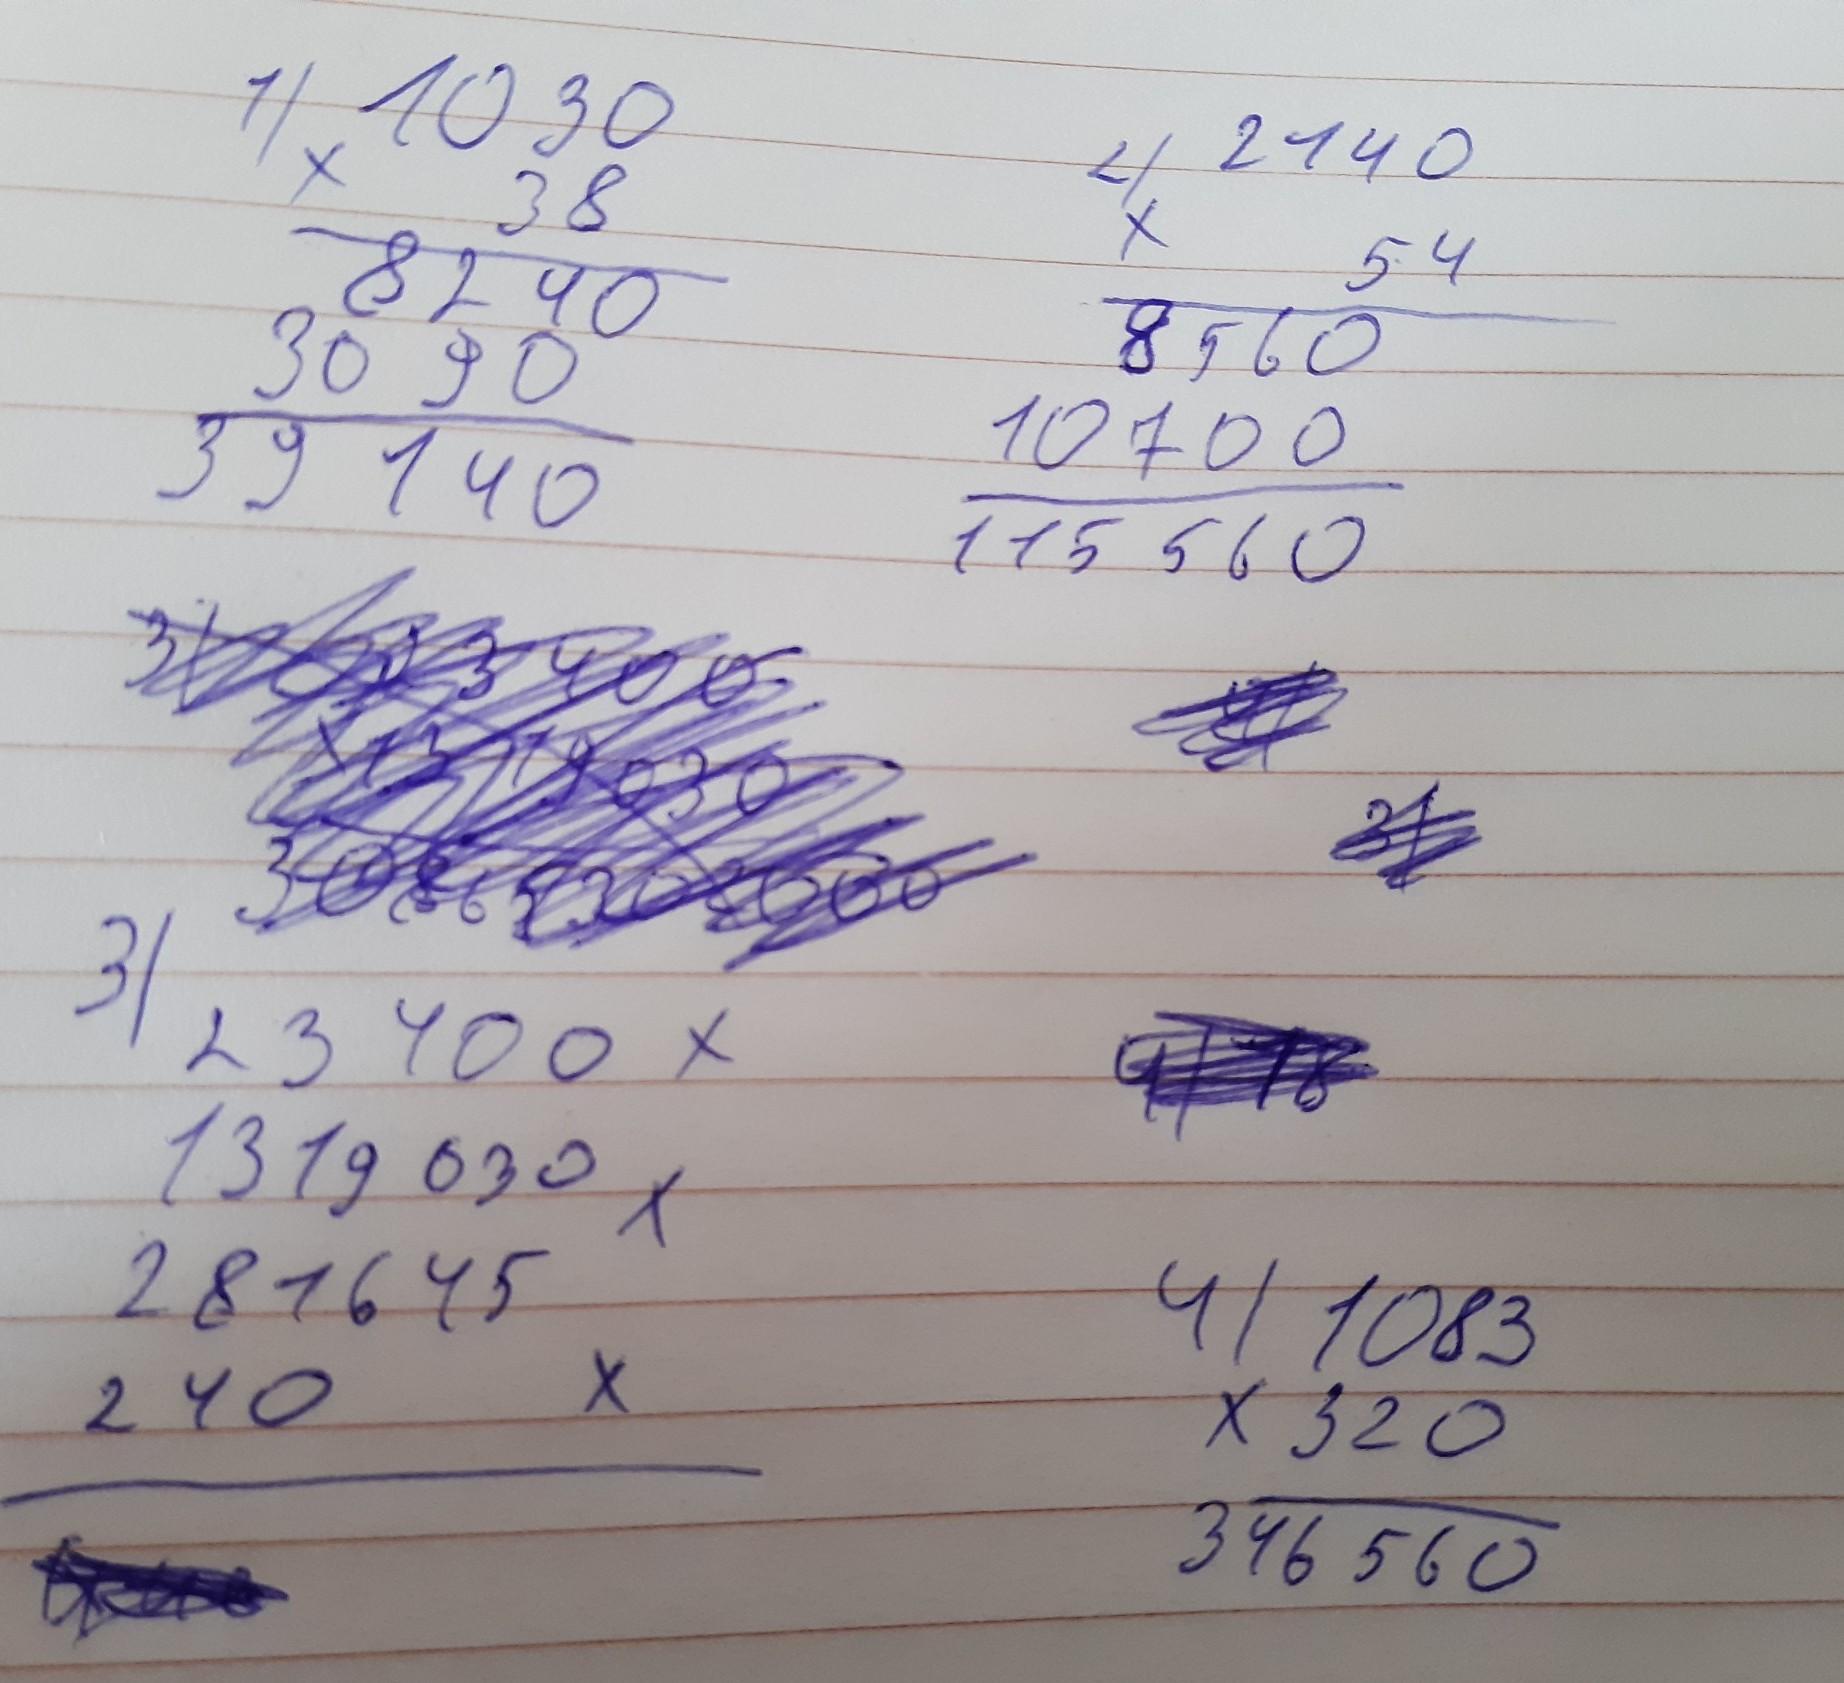 1/ 1030
x 38
8240
3090
39140
2/ 2140
x 54
8560
10700
115560
3/ 23400 x
1319030 x
281645
240 x
4/ 1083
x 320
346560